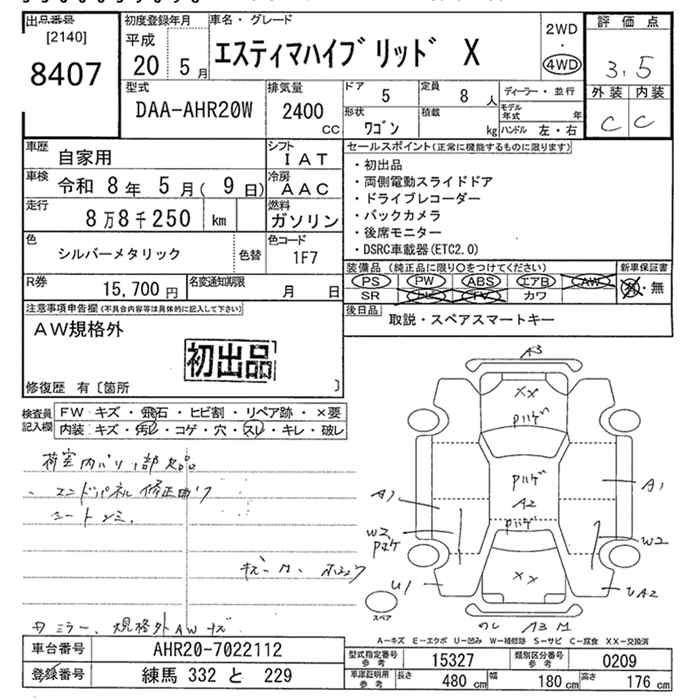 出品番号
[2140]
8407
初度登録年月
平成
20 5 月
車名・グレード
エスティマハイブリッド X
2WD
・
4WD
評価点
3.5
外装 内装
C C
型式
DAA-AHR20W
排気量
2400
CC
ドア 5
定員 8 人
形状 ワゴン
積載 kg
ディーラー・並行
モデル年式 年
ハンドル 左・右
車歴 自家用
シフト IAT
車検 令和 8 年 5 月( 9 日)
冷房 AAC
走行 8万8千250 km
燃料 ガソリン
色 シルバーメタリック
色替
色コード 1F7
R券 15,700 円
名変通知期限 月 日
セールスポイント(正常に機能するものに限ります)
・初出品
・両側電動スライドドア
・ドライブレコーダー
・バックカメラ
・後席モニター
・DSRC車載器(ETC2.0)
装備品 (純正品に限り○をつけてください)
PS PW ABS エアB AW
SR TV カワ
新車保証書
有・無
後日品
取説・スペアスマートキー
注意事項申告欄(不具合内容等は具体的に記入して下さい)
AW規格外
初出品
修復歴 有〔箇所 〕
検査員記入欄
FW キズ・飛石・ヒビ割・リペア跡・×要
内装 キズ・汚レ・コゲ・穴・スレ・キレ・破レ
荷室内バリ1部欠品
エンドパネル修正曲リ
シートシミ
規格外AWキズ
A3
XX
Pハゲ
Pハゲ
A2
Pハゲ
XX
A1
A1
W2
Pハゲ
W2
U1
UA2
A3
スペア
A-キズ E-エクボ U-凹み W-補修跡 S-サビ C-腐食 XX-交換済
車台番号 AHR20-7022112
登録番号 練馬 332 と 229
型式指定番号
参考
15327
類別区分番号
参考
0209
車庫証明用
参考
長さ 480 cm
幅 180 cm
高さ 176 cm